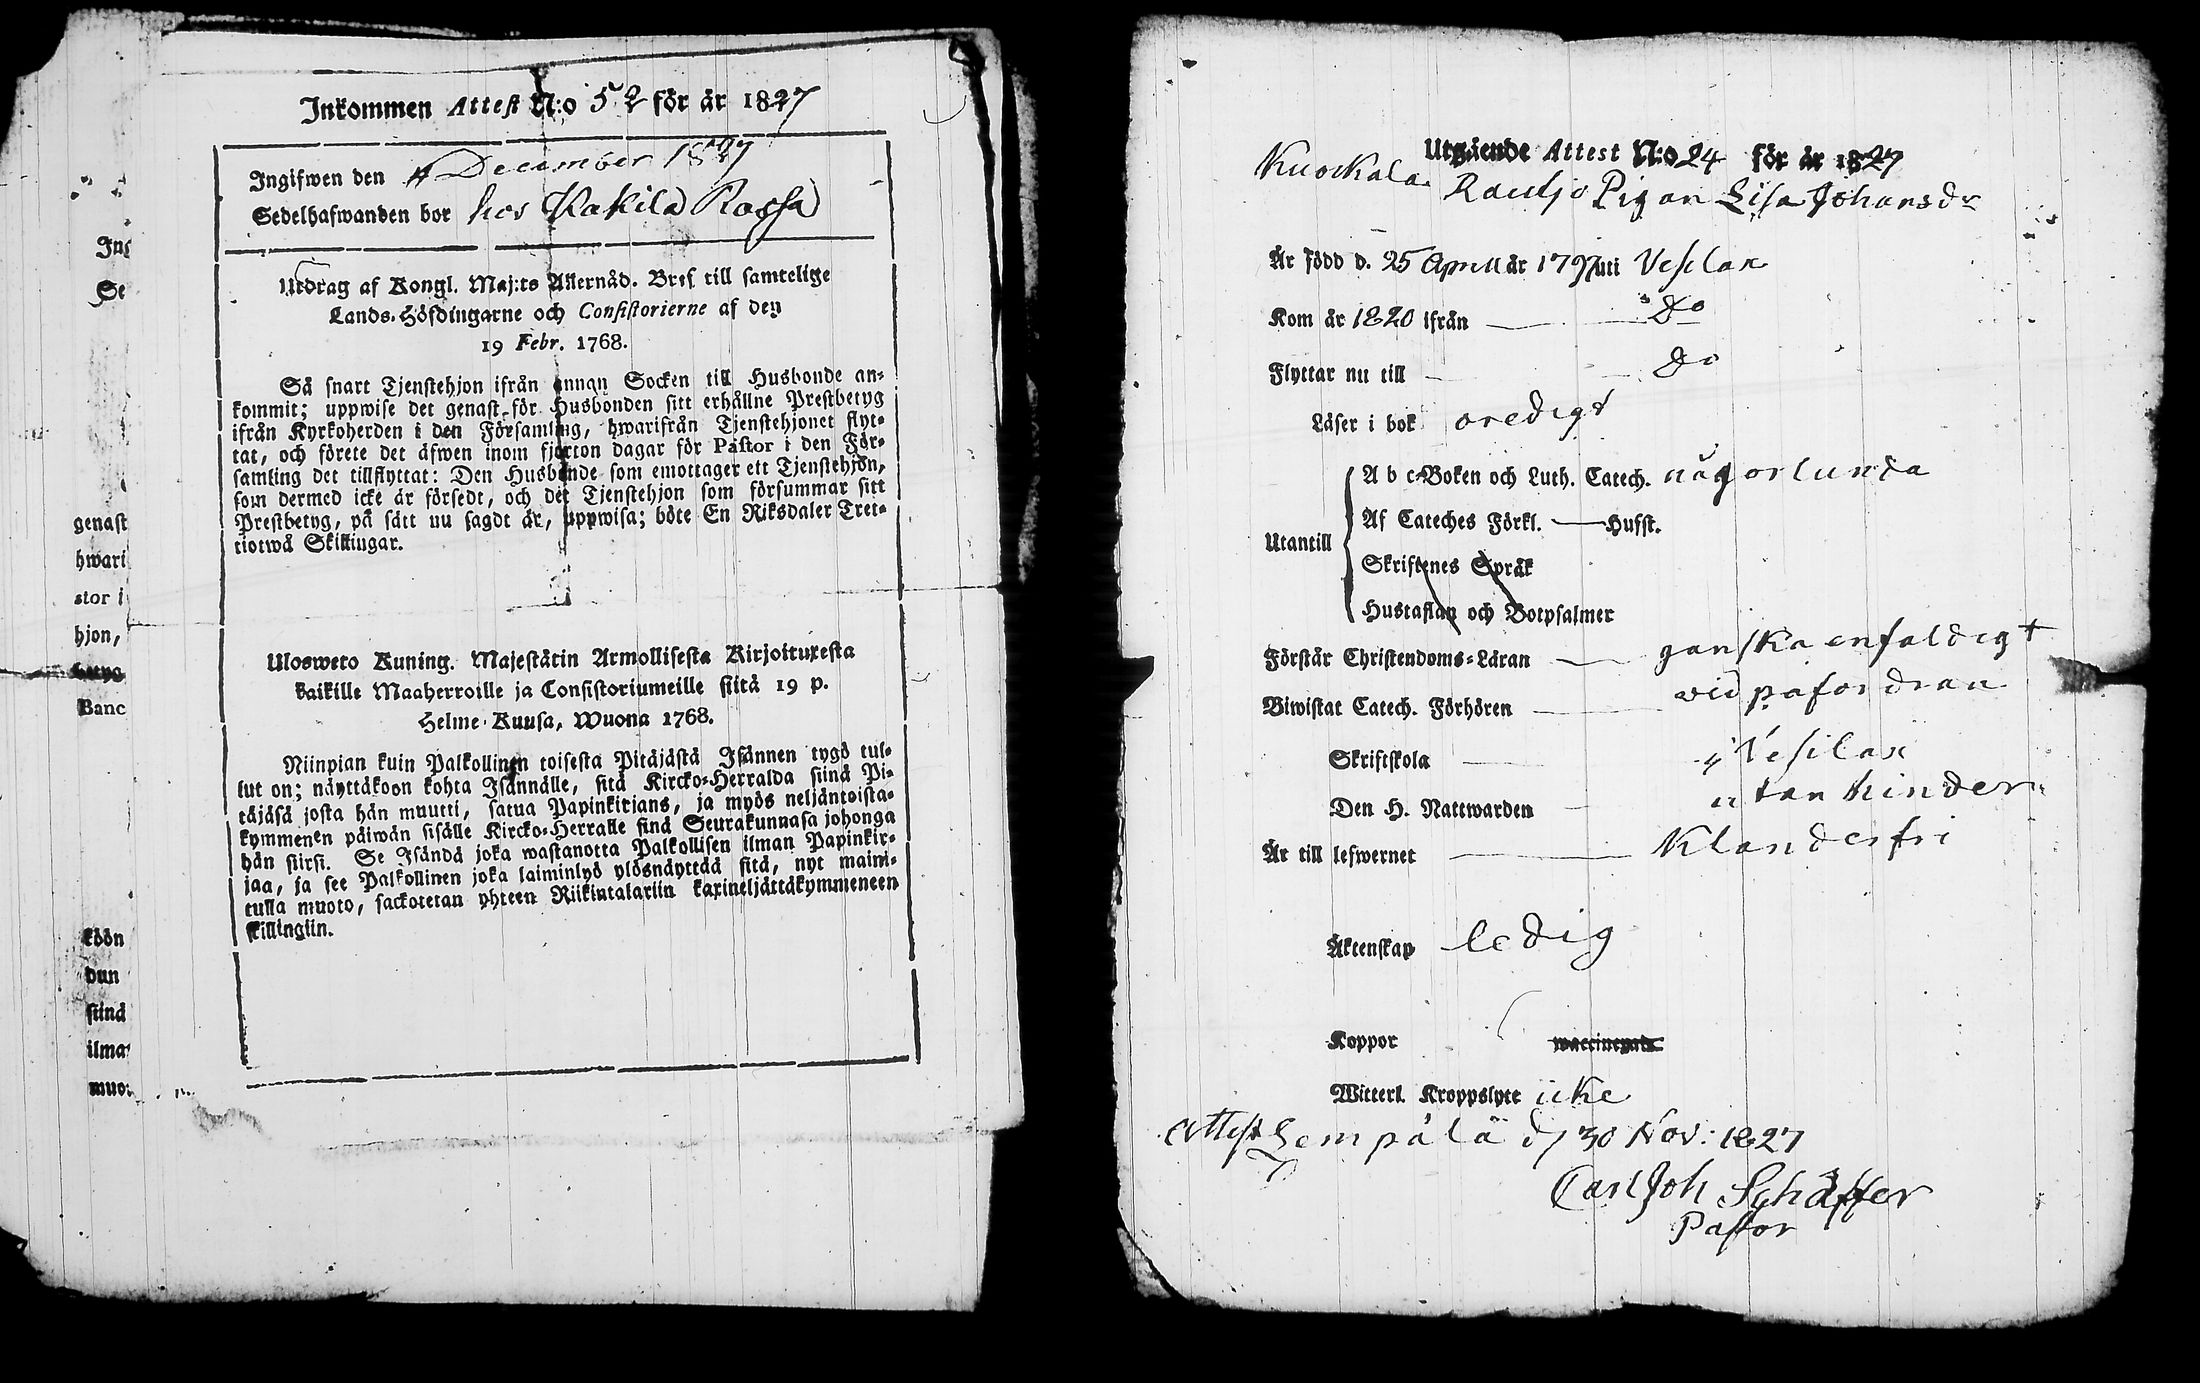 Inkommen Attest N:o 52 för år 1827
Ingifwen den 4 December 1827
Sedelhafwanden bor hos Kakila Rossa
Utdrag af Kongl. Maj:ts Allernåd. Bref till samtelige
Lands-Höfdingarne och Consistorierne af den
19 Febr. 1768.
Så snart Tjenstehjon ifrån annan Socken till Husbonde an-
kommit; uppwise det genast för Husbonden sitt erhållne Prestbetyg
ifrån Kyrkoherden i den Församling, hwarifrån Tjenstehjonet flyt-
tat, och förete det äfwen inom fjorton dagar för Pastor i den För-
samling det tillflyttat: Den Husbonde som emottager ett Tjenstehjon,
som dermed icke är försedt, och det Tjenstehjon som försummar sitt
Prestbetyg, på sätt nu sagdt är, uppwisa; böte En Riksdaler Tret-
tiotwå Skillingar.
Ulosweto Kuning. Majestätin Armollisesta Kirjoituxesta
kaikille Maaherroille ja Consistoriumeille siitä 19 p.
Helme-Kuusa, Wuona 1768.
Niinpian kuin Palkollinen toisesta Pitäjästä Isännen tygö tul-
lut on; näyttäkoon kohta Isännälle, sitä Kircko-Herralda siinä Pi-
täjäsä josta hän muutti, saatua Papinkirjans, ja myös neljäntoista-
kymmenen päiwän sisälle Kircko-Herralle siinä Seurakunnasa johonga
hän siirsi. Se Isändä joka wastanotta Palkollisen ilman Papinkir-
jaa, ja see Palkollinen joka laiminlyö ylösnäyttää sitä, nyt maini-
tulla muoto, sackotetan yhteen Riikintalariin kaxineljättäkymmeneen
skillingiin.
genast
hwari
stor i
hjon,
betyg
Banc
köön
dun
siinä
ilma
muo
Utgående Attest N:o 24 för år 1827
Kuockala Rautjo Pigan Lisa Johansdr
Är född d. 25 April år 1797 uti Vesilax
Kom år 1820 ifrån do
Flyttar nu till do
Läser i bok oredigt
A b c-Boken och Luth. Catech. någorlunda
Af Cateches Förkl. Hufst.
Utantill
Skriftenes Språk
Hustaflan och Botpsalmer
Förstår Christendoms-Läran ganska enfaldigt
Biwistat Catech. Förhören wid påfordran
Skriftskola i Vesilax
Den H. Nattwarden utan hinder
Är till lefwernet Klanderfri
Äktenskap ledig
Koppor waccinerade
Witterl. Kroppslyte icke
Attest Lempälä d 30 Nov: 1827
Carl Joh Schäffer
Pastor